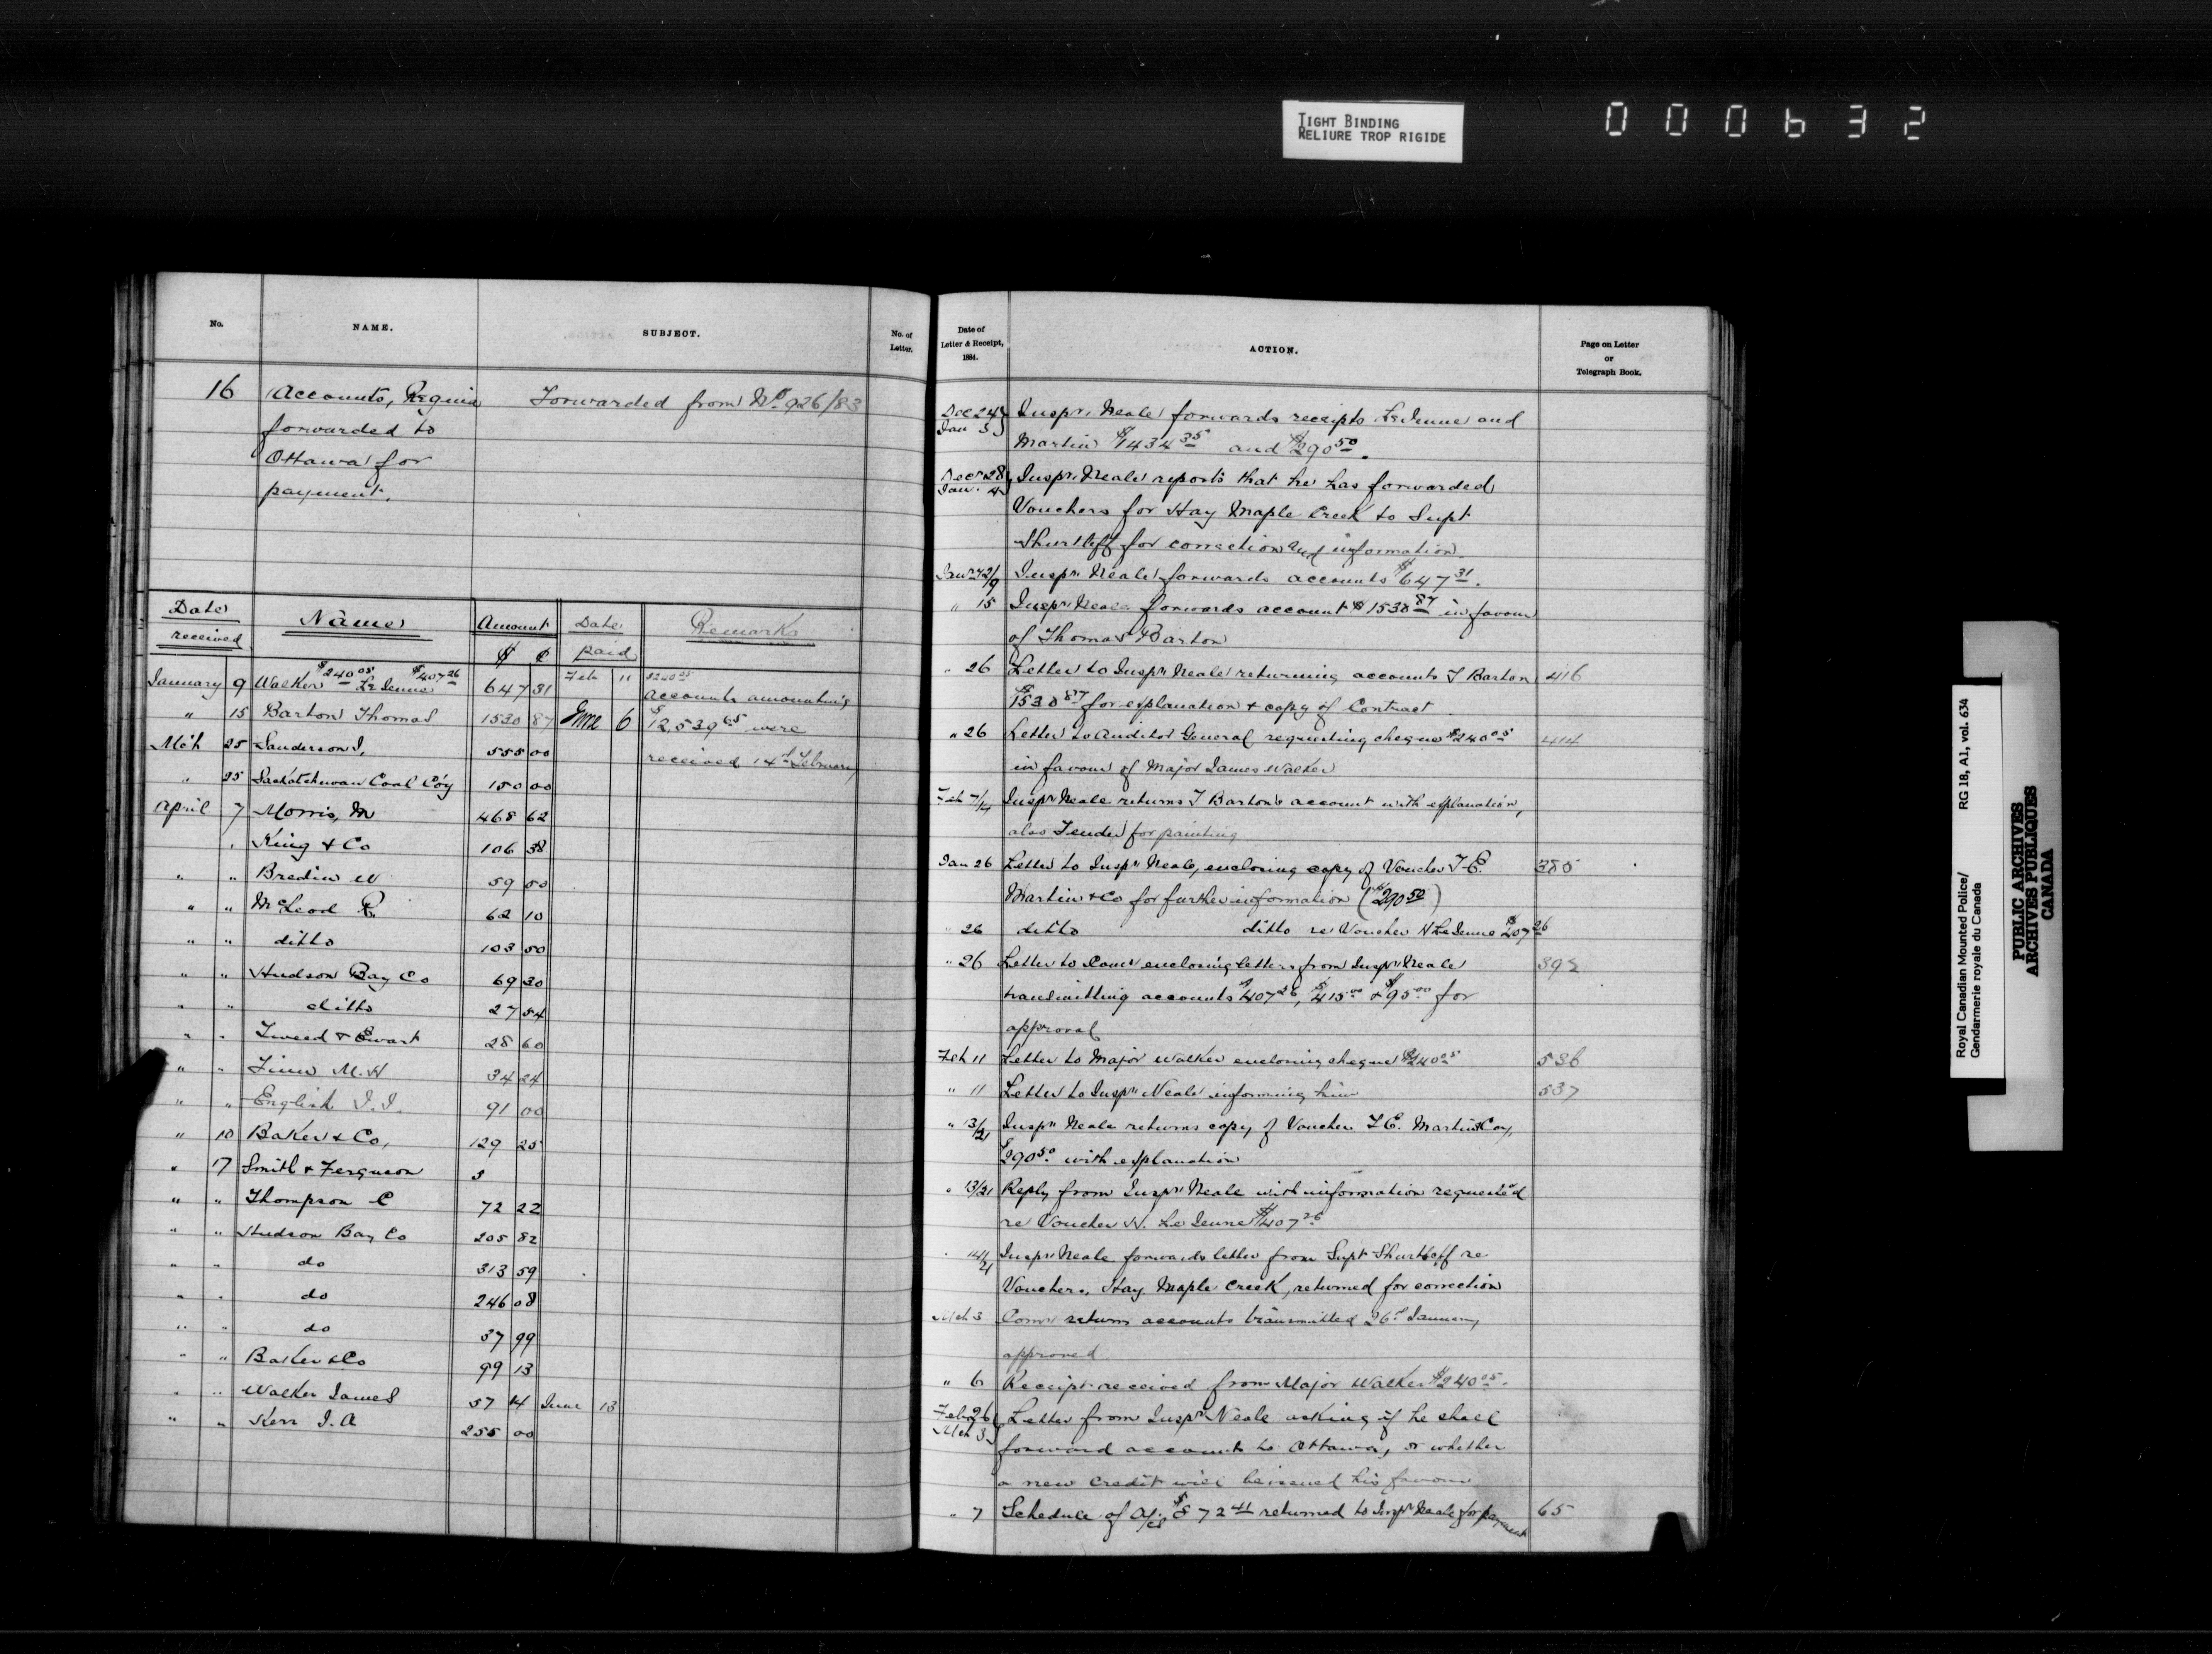 TIGHT BINDING
RELIURE TROP RIGIDE
000632
No.
NAME.
SUBJECT.
No. of
Letter.
16 Accounts, Regina Forwarded from No 926/83
forwarded to
Ottawa for
payment.
Date received Name Amount $ ¢ Date paid Remarks
$240 05 $407 26
January 9 Walker LeJeune 647 31 Feb 11 $240 05
Accounts amounting
" 15 Barton Thomas 1530 87 June 6 $12,539 65 were
received 14th February
Mch 25 Sanderson J, 555 00
" 25 Saskatchewan Coal Coy 150 00
April 7 Morris, M 468 62
" King & Co 106 38
" " Bredin W 59 50
" " McLeod R 62 10
" " ditto 103 50
" " Hudson Bay Co 69 30
" " ditto 27 54
" " Tweed & Ewart 28 60
" " M. H 34 24
" " English J. J. 91 00
" 10 Baker & Co, 129 25
" 17 Smith & Ferguson 5
" " Thompson C 72 22
" " Hudson Bay Co 205 82
" " do 313 59
" " do 246 08
" " do 37 99
" " Baker & Co 99 13
" " Walker James 57 14 June 13
" " Kerr J. A 255 00
Date of
Letter & Receipt,
1884.
ACTION.
Page on Letter
or
Telegraph Book.
Dec 24 Jan 3 Inspr. Neale forwards receipts LeJeune and
Martin $1434 35 and $290 50.
Decr 28 Jan. 4 Inspr. Neale reports that he has forwarded
Vouchers for Hay Maple Creek to Supt
Shurtliff for correction and information.
Jany 2/9 Inspr Neale forwards accounts $647 31.
" 15 Inspr Neale forwards account $1530 87 in favour
of Thomas Barton
" 26 Letter to Inspr Neale returning accounts T Barton 416
$1530 87 for explanation & copy of Contract
" 26 Letter to Auditor General requesting cheque $240 05 414
in favour of Major James Walker
Feb 7/14 Inspr Neale returns T Barton's account with explanation,
also Tender for painting
Jan 26 Letter to Inspr Neale, enclosing copy of Voucher T. E. 385
Martin & Co for further information ($290 50)
" 26 ditto ditto re Voucher H LeJeune $407 26
" 26 Letter to Comr enclosing letters from Inspr Neale 392
transmitting accounts $407 26, $415 00 & $95 00 for
approval
Feb 11 Letter to Major Walker enclosing cheque $240 05 536
" 11 Letter to Inspr Neale informing him 537
" 13/21 Inspr Neale returns copy of Voucher T. E. Martin & Coy,
$290 50 with explanation
" 13/21 Reply from Inspr Neale with information requested
re Voucher H. LeJeune $407 26
" 14/21 Inspr Neale forwards letter from Supt Shurtliff re
Vouchers, Hay Maple Creek, returned for correction
Mch 3 Comr returns accounts transmitted 26th January
approved
" 6 Receipt received from Major Walker $240 05.
Feby 26 Mch 3 Letter from Inspr Neale asking if he shall
forward accounts to Ottawa, or whether
a new credit will be issued his favour
" 7 Schedule of a/cs $872 41 returned to Inspr Neale for payment 65
Royal Canadian Mounted Police/ RG 18, A1, vol. 634
Gendarmerie royale du Canada
PUBLIC ARCHIVES
ARCHIVES PUBLIQUES
CANADA